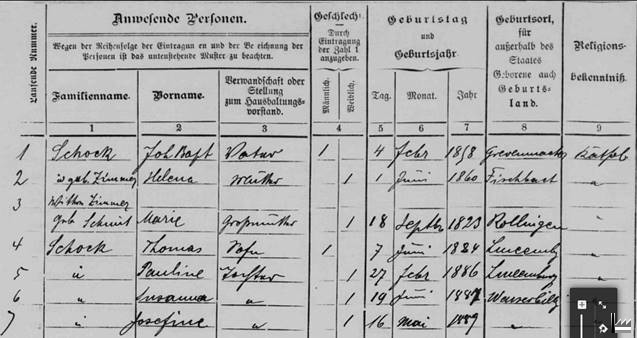 Laufende Nummer.
Anwesende Personen.
Wegen der Reihenfolge der Eintragun en und der Be eichnung der
Personen ist das untenstehende Muster zu beachten.
Familienname.
Vorname.
Verwandschaft oder
Stellung
zum Haushaltungs-
vorstand.
Geschlecht.
Durch
Eintragung
der Zahl 1
anzugeben.
Männlich.
Weiblich.
Geburtstag
und
Geburtsjahr.
Tag.
Monat.
Jahr
Geburtsort,
für
außerhalb des
Staates
Geborene auch
Geburts-
land.
Religions-
bekenntniß.
1 2 3 4 5 6 7 8 9
1 Schock Joh Bapt Vater 1 4 Febr 1858 Grevenmacher Kathol
2 geb. Zimmer Helena Mutter 1 1 Juni 1860 Fischbach "
3 Zimmer
geb Schmit Marie Großmutter 1 18 Septbr 1823 Rollingen "
4 Schock Thomas Sohn 1 7 Juni 1884 Luxemb "
5 " Pauline Tochter 1 27 Febr 1886 Luxemburg "
6 " Susanna " 1 19 Juni 1887 Wasserbillig "
7 " Josefine " 1 16 Mai 1889 " "